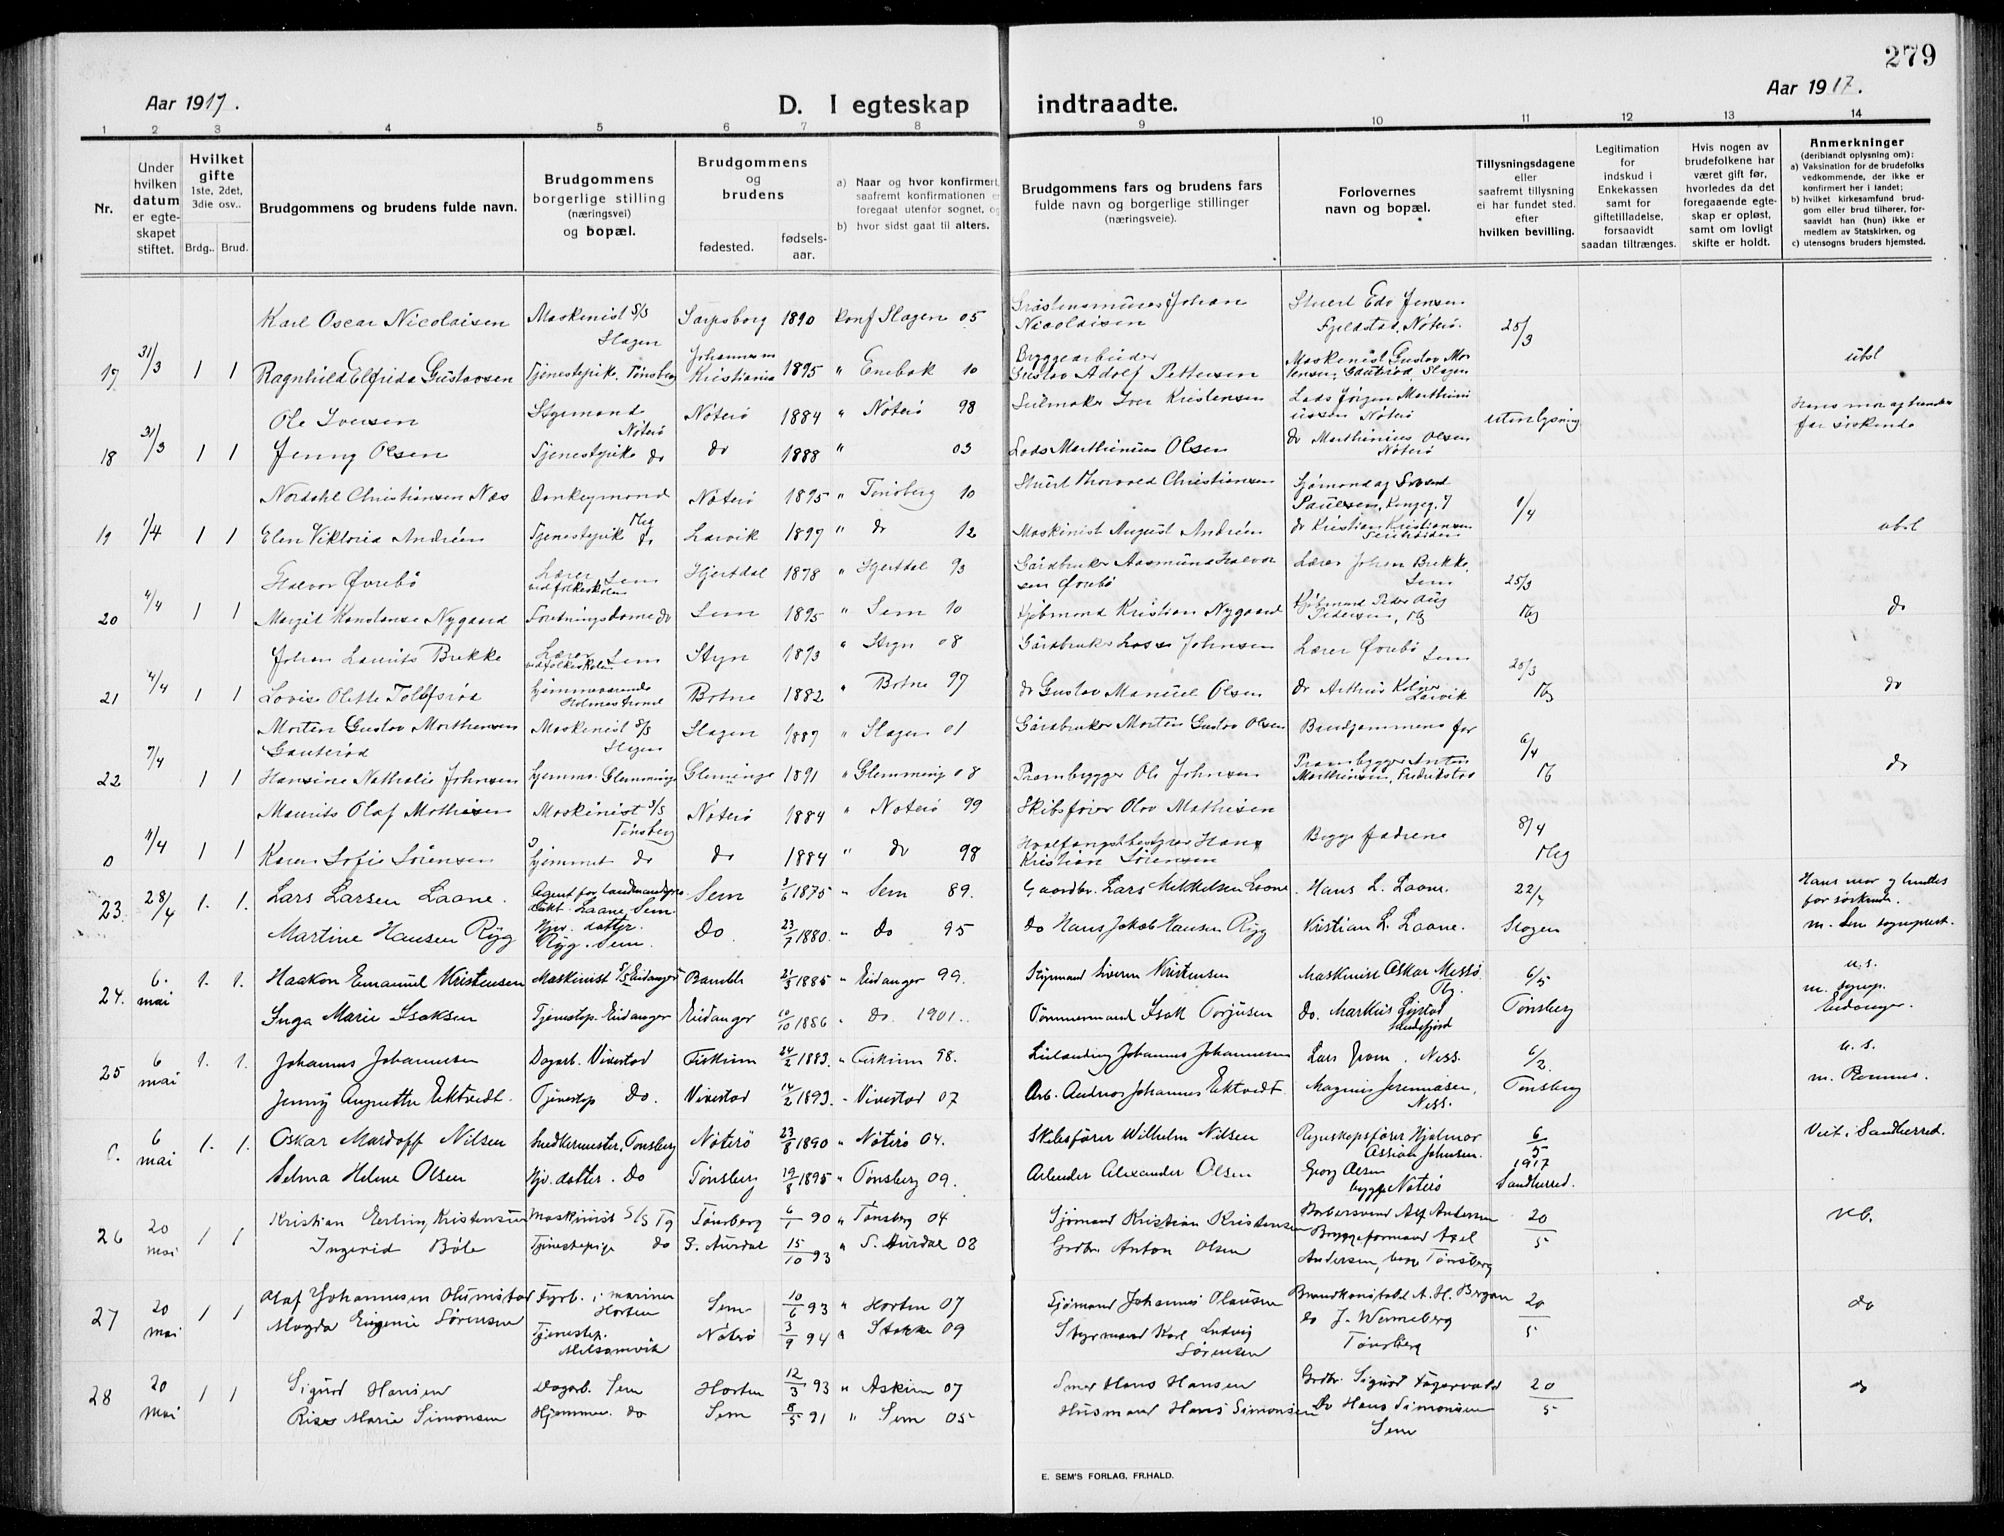 279
Aar 1917.
D. I egteskap indtraadte.
Aar 1917.
1 2 3 4 5 6 7 8 9 10 11 12 13 14
Nr.
Under hvilken datum er egteskapet stiftet.
Hvilket gifte
1ste, 2det, 3die osv..
Brdg.. Brud.
Brudgommens og brudens fulde navn.
Brudgommens borgerlige stilling (næringsvei) og bopæl.
Brudgommens og brudens
fødested.
fødsels-aar.
a) Naar og hvor konfirmert,
saafremt konfirmationen
foregaat utenfor sognet, og
b) hvor sidst gaat til alters.
Brudgommens fars og brudens fars fulde navn og borgerlige stillinger (næringsveie).
Forlovernes navn og bopæl.
Tillysningsdagene eller saafremt tillysning ei har fundet sted. efter hvilken bevilling.
Legitimation for indskud i Enkekassen samt for giftetilladelse, forsaavidt saadan tiltrænges.
Hvis nogen av brudefolkene har været gift før, hvorledes da det foregaaende egteskap er opløst, samt om lovligt skifte er holdt.
Anmerkninger
(deriblandt oplysning om):
a) Vaksination for de brudefolks vedkommende, der ikke er konfirmert her i landet;
b) hvilket kirkesamfund brudgom eller brud tilhører, forsaavidt han (hun) ikke er medlem av Statskirken, og
c) utensogns bruders hjemsted.
Karl Oscar Nicolaisen Maskinist S/S Slagen Sarpsborg 1890 konf Slagen 05 Johan Nicolaisen Stuert Edv Jensen Fjeldstad, Nøterø. 25/3
17 31/3 1 1 Ragnhild Elfrida Gustavsen Tjenestepike. Tønsberg Johannes m Kristiania 1895 " Enebak 10 Byggearbeider Gustav Adolf Pettersen Maskinist Gustav Mortensen, Gauterød, Slagen ubsl
Ole Iversen Styrmand Nøterø Nøterø 1884 " Nøterø 98 Seilmaker Iver Kristensen Lods Jørgen Marthiniussen Nøterø utenlysning
18 31/3 1 1 Jenny Olsen Tjenestepike do do 1888 " 03 Lods Marthinius Olsen do Marthinius Olsen Nøterø
Nordahl Christiansen Næs Donkeymand Nøterø 1895 " Tønsberg 10 Stuert Thorvald Christiansen 1/4
19 1/4 1 1 Elen Viktoria Andréen Tjenestepik do Larvik 1897 " do 12 Maskinist August Andréen do Kristian Kristiansen ubsl
Halvor Øvrebø Lærer Sem vidfolkeskolen Hjertdal 1878 " Hjertdal 93 Gårdbruker Aasmund Halvorsen Øvrebø Lærer Johan Brekke, Sem 25/3
20 4/4 1 1 Margit Konstanse Nygaard Forretningsdame do Sem 1895 " Sem 10 Kjøbmand Kristian Nygaard Kjøbmand Peder Aug Pedersen, Tbg Tbg do
Johan Laurits Brekke Lærer Sem vidfolkeskolen Stryn 1893 " Stryn 08 Gårdbruker Lasse Johnsen Lærer Øvrebø Sem 25/3
21 4/4 1 1 Lovise Olette Tollefsrød hjemmeværende Holmestrand Botne 1882 " Botne 97 do Gustav Manuel Olsen do Arthur Larvik Tbg do
Morten Gustav Morthensen Gauterød Maskinist S/S Slagen Slagen 1887 " Slagen 01 Gårdbruker Morten Gustav Olsen Brudgommens far 6/4
22 7/4 1 1 Hansine Nathalie Johnsen hjemme. Glemminge Gleminge 1891 " Glemming 08 Prambygger Ole Johnsen Prambygger Anton Marthinsen, Fredrikstad do
Maurits Olaf Mathisen Maskinist S/S Tønsberg Nøterø 1884 " Nøterø 99 Skibsfører Olav Mathisen Begge fædrene 8/4
0 11/4 1 1 Karen Sofie Sørensen hjemmet do do 1884 " do 98 Hvalfangstbestyrer Hans Kristian Sørensen Tbg
23. 28/4 1. 1. Lars Larsen Laane. Agent for Laane, Sem. Sem 2/6 1875 " Sem 89. Gaardbr. Lars Mikkelsen Laane. Hans L. Laane. 22/4 Hans mor og
Martine Hansen Ryg Hjv. datter. Ryg. Sem. Do 23/7 1880. " Do 95 Do Hans Jakob Hansen Ryg Kristian L. Laane. Slagen m. Sem
24. 6. mai 1. 1. Haakon Emanuel Kristensen Maskinist S/S Eidanger Bamble 21/3 1885 " Eidanger 99. Styrmand Severin Kristensen Maskinist Oskar Messø Tbg. 6/5 u.s.
Inga Marie Isaksen Tjenestep. Eidanger Eidanger 10/10 1886 " Do. 1901. Tømmermand Isak Torgusen Do. Markus Sandefjord Tønsberg m. Eidanger.
25 6 mai 1. 1. Johannes Johannesen Dagarb. Vivestad Fiskum 24/2 1883. " Fiskum 98. Johannes Johannesen Lars From. Ness. 6/2 u.s.
Jenny Augusta Ektvedt. Tjenestep Do. Vivestad 14/2 1893. " Vivestad 07 Arb. Andreas Johannes Ektvedt Magnus Jeremiasen, Ness. Tønsberg m. Ramnes.
0. 6 mai 1. 1. Oskar Mardoff Nilsen Snedkermester, Tønsberg Nøterø 23/8 1890 " Nøterø 04. Skibsfører Wilhelm Nilsen Regnskapsfører Hjalmar Assian Johnsen. 6/5 1917 Viet i Sandherred.
Selma Helene Olsen Hjv. datter. Do Tønsberg 19/8 1895 " Tønsberg 09. Arbeider Alexander Olsen Georg Olsen begge Nøterø Sandherred.
26 20 mai 1 1 Kristian Erling Kristensen Maskinist S/S Tg Tønsberg 6/1 90 " Tønsberg 04 Sjømand Kristian Kristensen Barbersvend Alf Andersen 20/5
Ingerid Bøle Tjenestepige do S. Aurdal 15/10 93 " S. Aurdal 08 Grdbr Anton Olsen Bryggeformand Axel Andersen, begge Tønsberg
27 20 mai 1 1 Olaf Johannesen Fyrb. i marinen Horten Sem 10/6 93 " Horten 07 Sjømand Johannes Olausen Brandkonstabel A. H. Bergan 20/5 do
Magda Eugenie Sørensen Tjenestep. Melsomvik Nøterø 3/9 94 " Stokke 09 Styrmand Karl Ludvig Sørensen do J. Wenneberg Tønsberg
28 20 mai 1 1 Sigurd Hansen Dagarb. Sem Horten 12/3 93 " Askim 07 Smed Hans Hansen Grdbr. Sigurd 20/5 do
Marie Simonsen Hjemme. do Sem 8/5 91 " Sem 05 Husmand Hans Simonsen Do Hans Simonsen Sem
E. SEM'S FORLAG, FR.HALD.